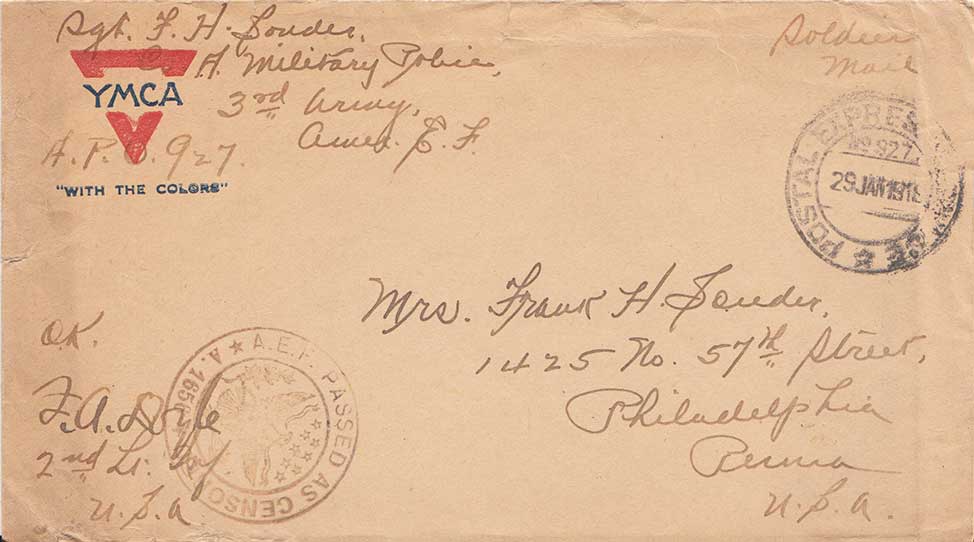 Sgt. F. H. Souder,
Co A. Military Police,
3rd Army,
Amer. E. F.
A. P. O. 927.
YMCA
"WITH THE COLORS"
Soldier
Mail
POSTAL EXPRESS
927
29 JAN 191
Mrs. Frank H. Souder,
1425 No. 57th Street,
Philadelphia
Penna
U. S. A.
O.K.
F. A.
2nd Lt. Inf
U. S. A
A.E.F. PASSED AS CENSO
A.